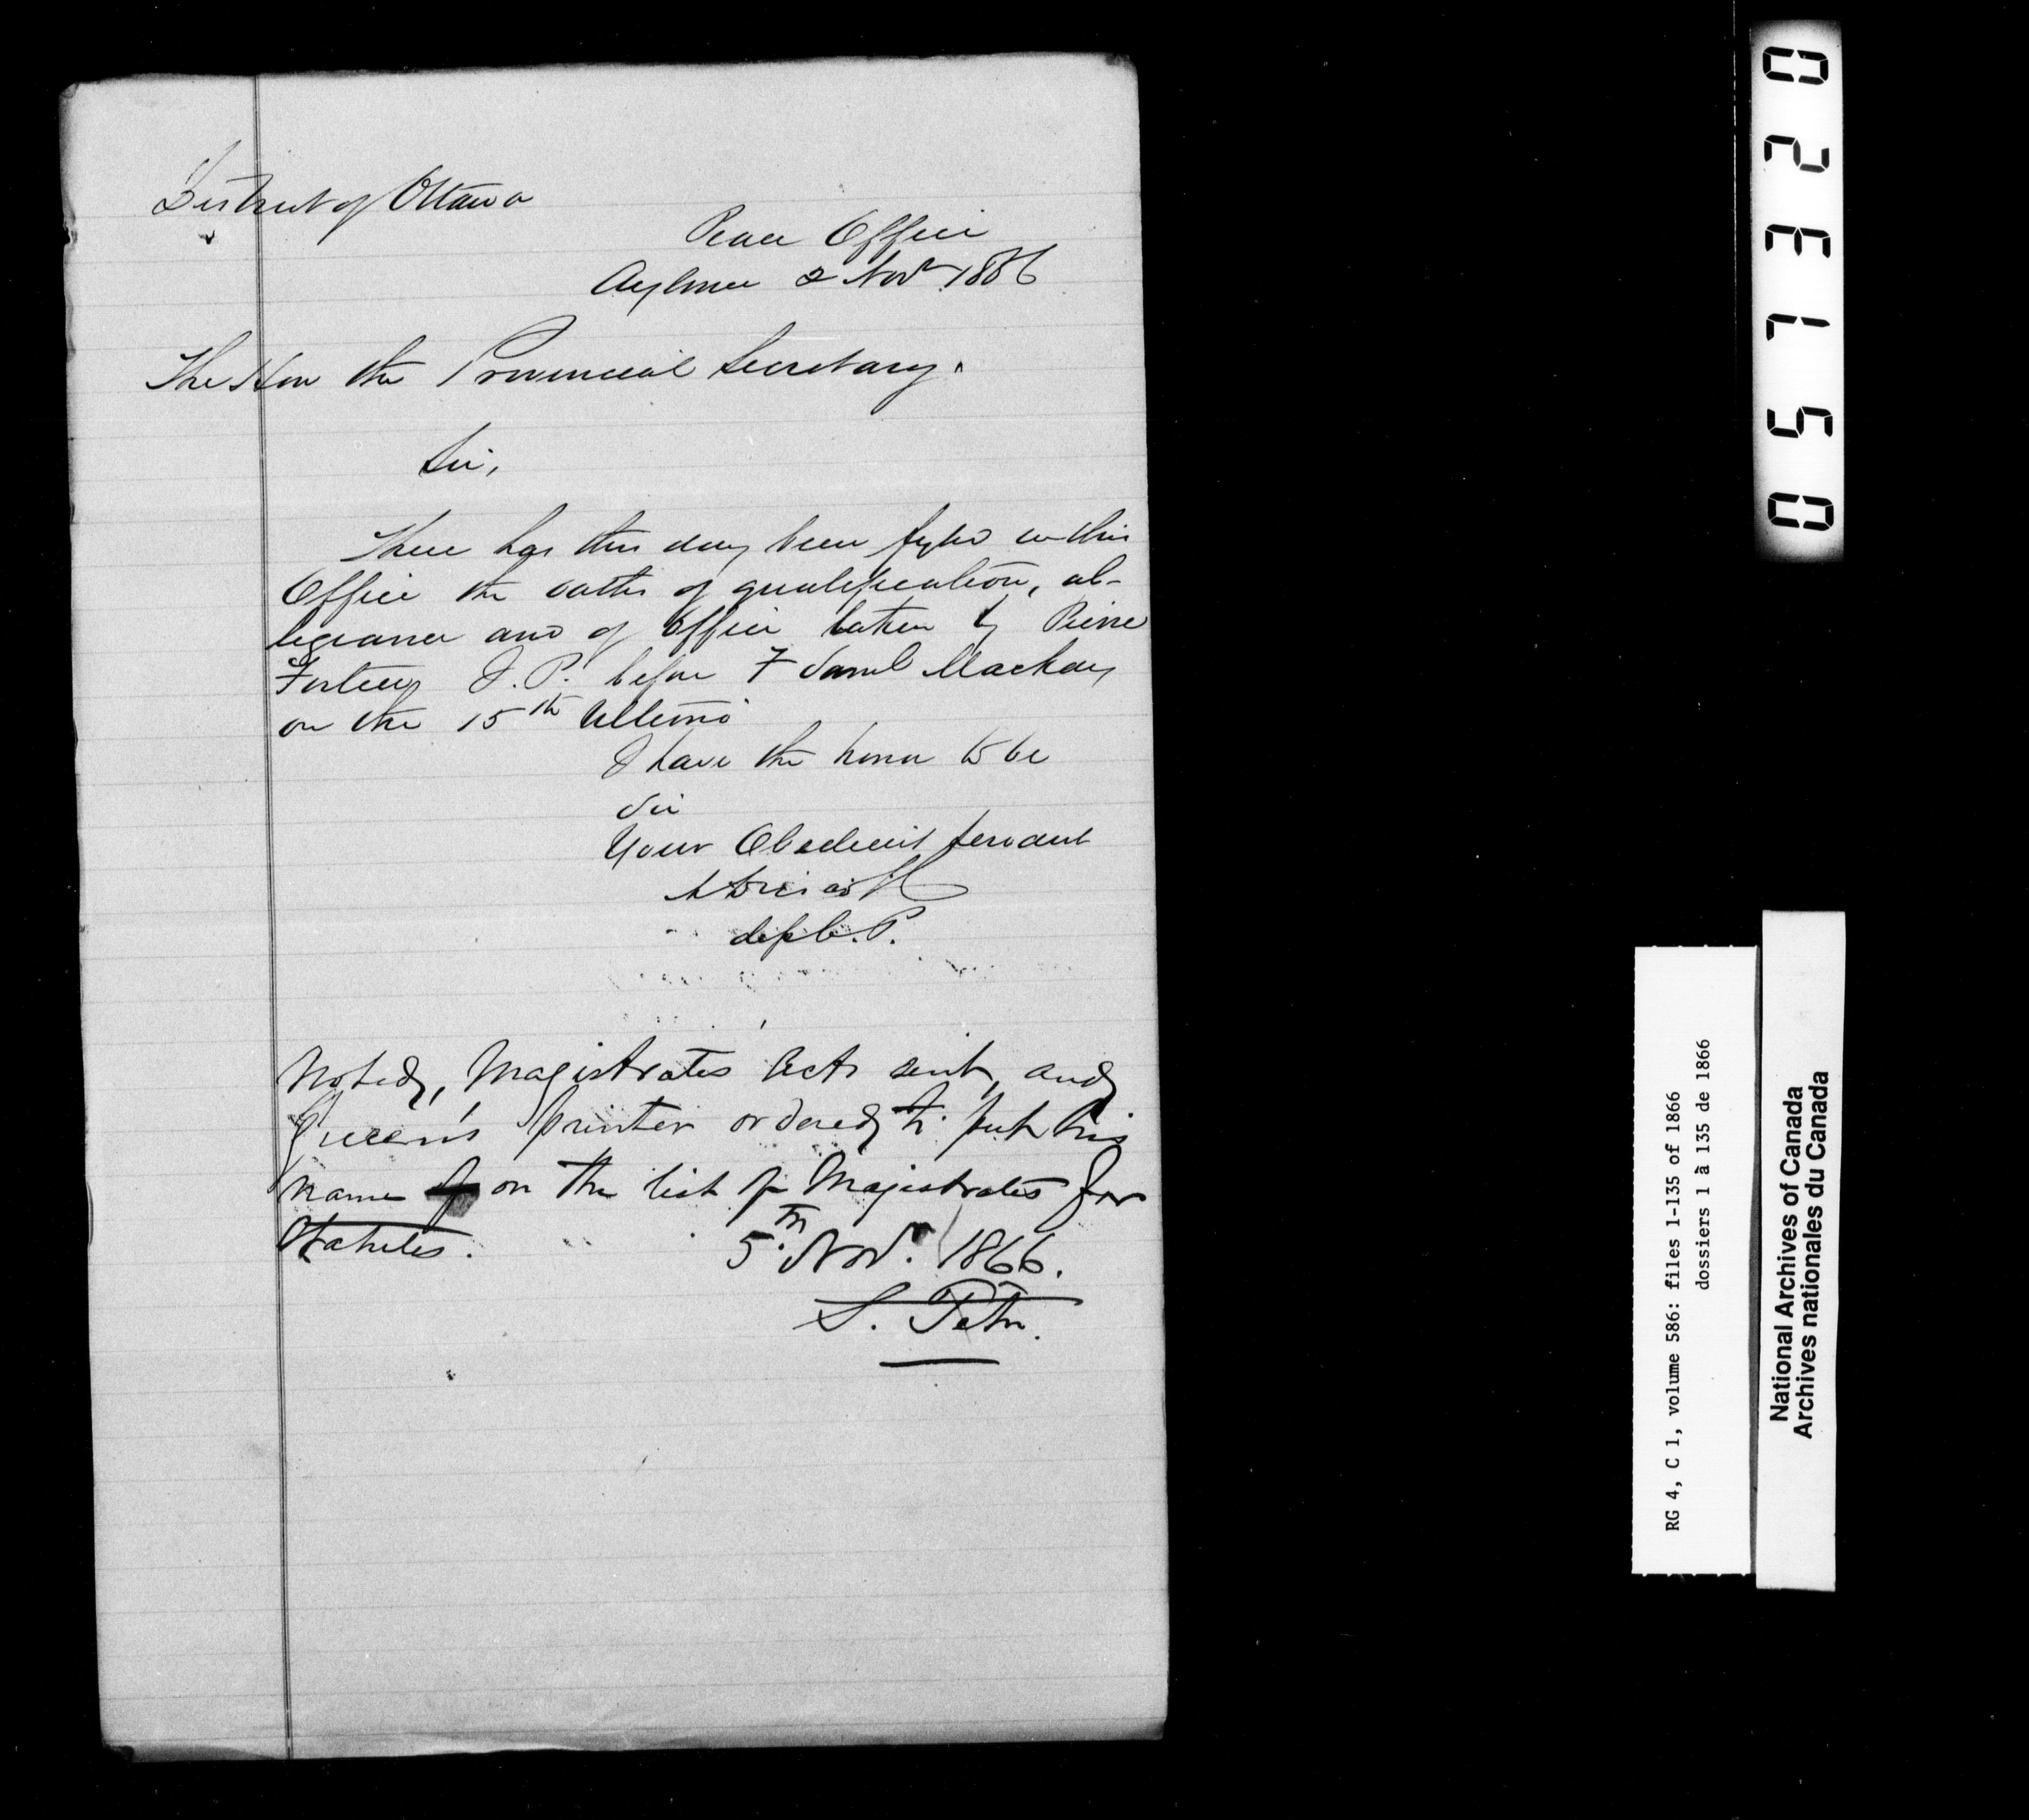 District of Ottawa
Peace Office
Aylmer 2 Novr 1866
The Hon the Provincial Secretary.
Sir,
There has this day been fyled in this
Office the oaths of qualification, al-
legiance and of Office taken by Pierre
J. P. before F Saml Mackay
on the 15th Ultimo
I have the honor to be
Sir
Your Obedient servant
dep C. P.
Noted, Magistrates Acts sent, and
Queen's printer ordered to put his
name on the list of Magistrates for
Statutes.
5th Novr. 1866.
023150
RG 4, C 1, volume 586: files 1-135 of 1866
dossiers 1 à 135 de 1866
National Archives of Canada
Archives nationales du Canada